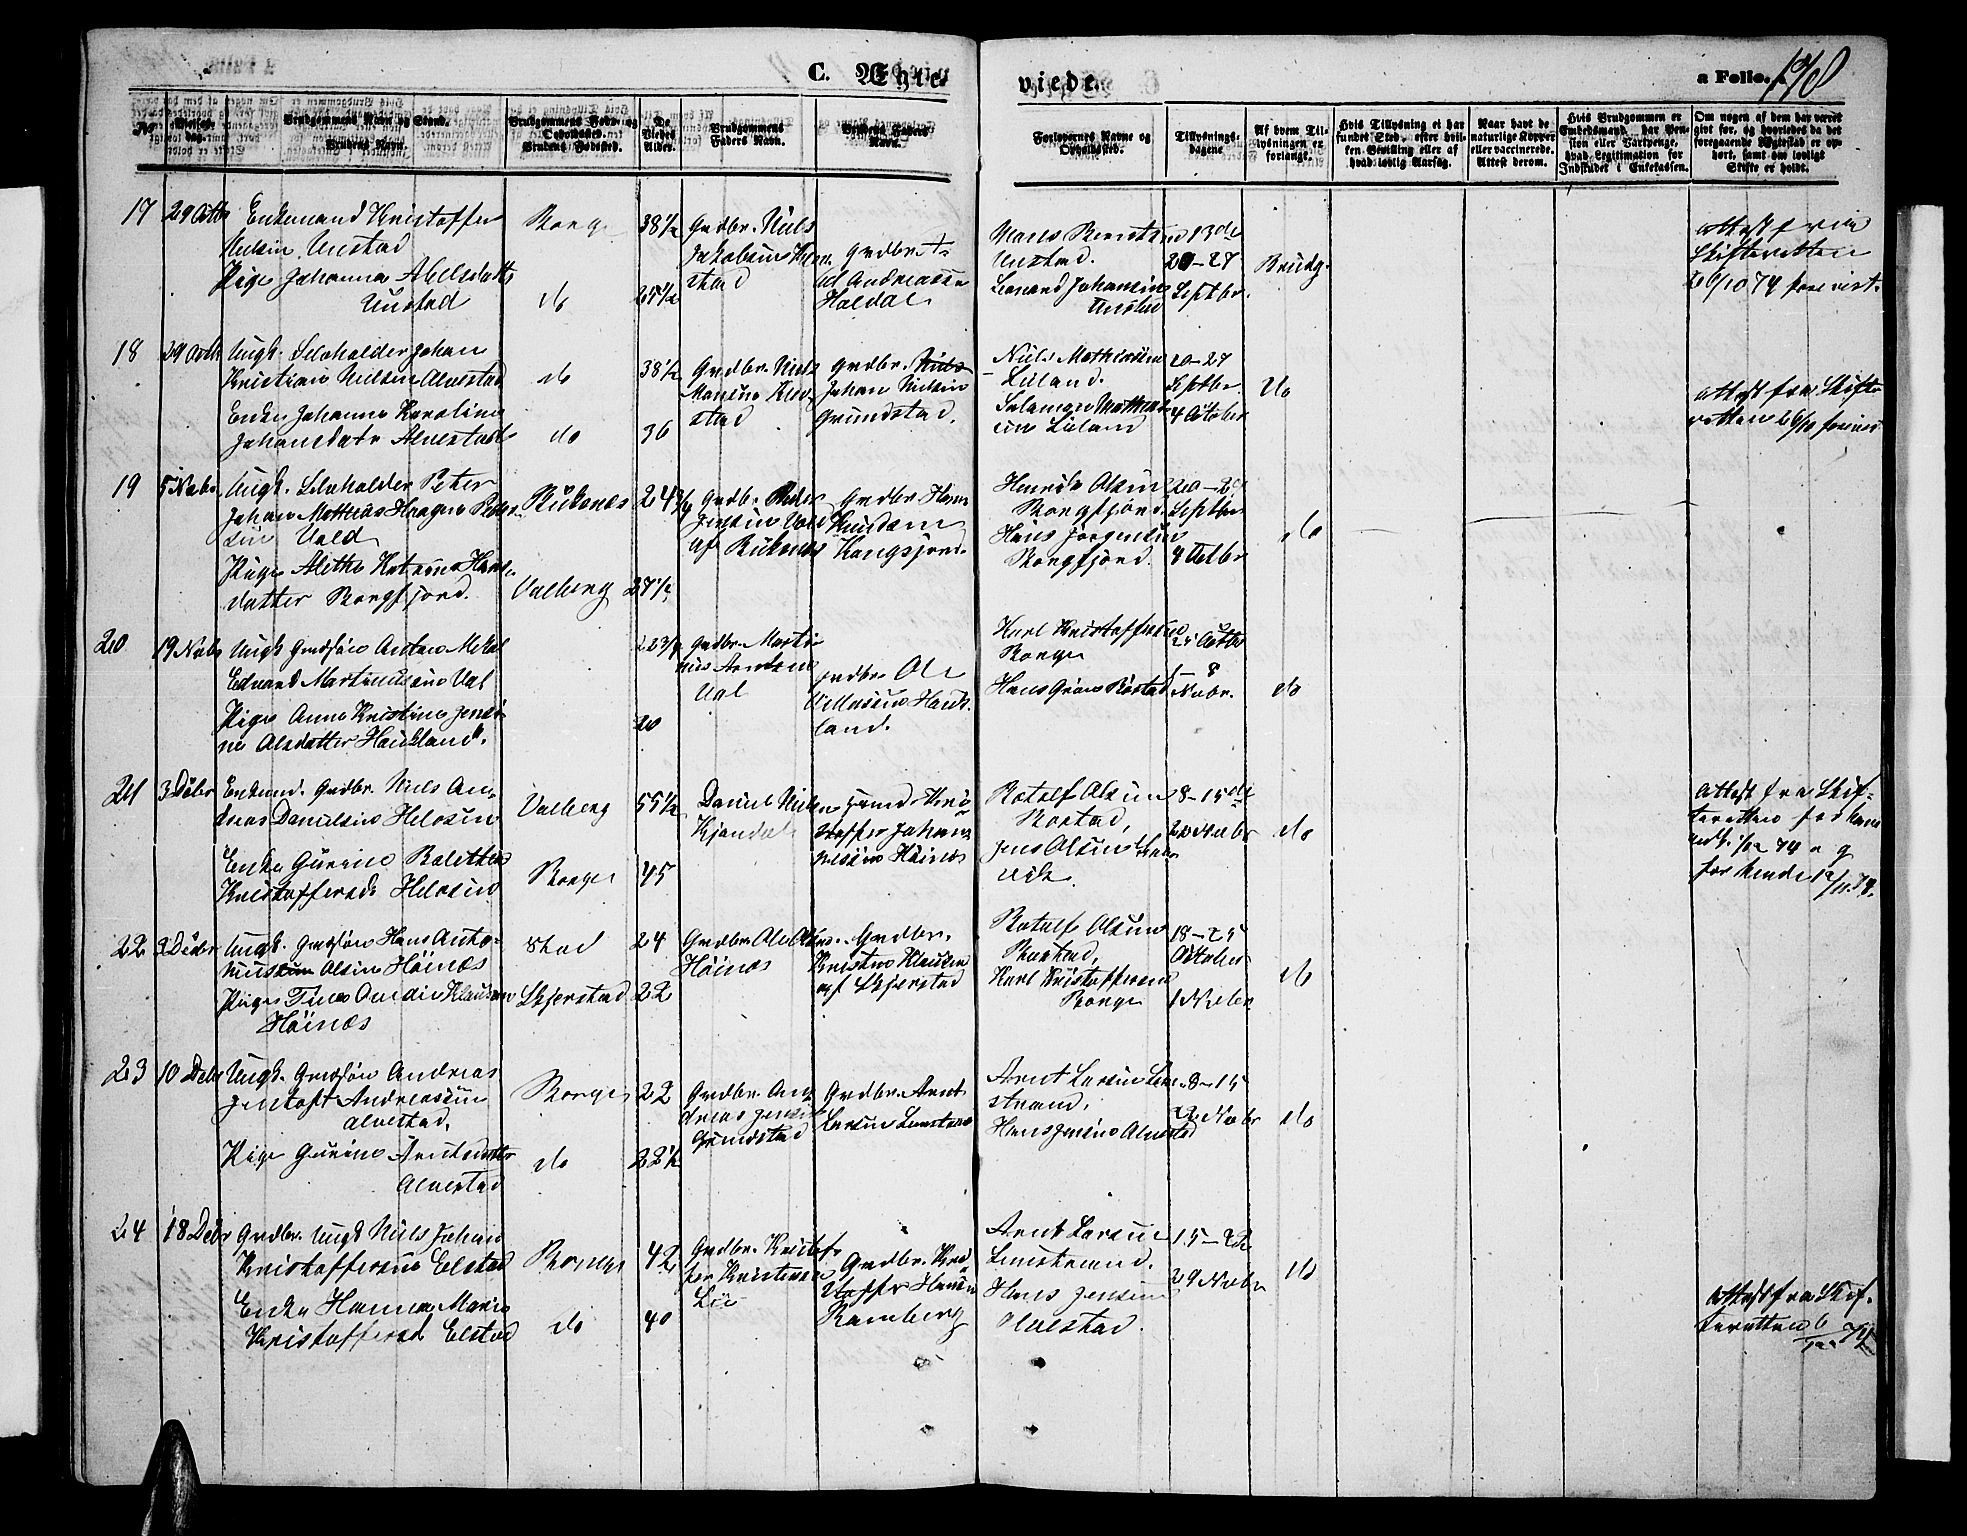 C. Ægte-
viede.
a Folio. 190
No.
Vielses-
dag.
Brudgommens Navn og Stand.
Brudens Navn.
Brudgommens Føde- og
Opholdssted.
Brudens Fødested.
De
Viedes
Alder.
Brudgommens
Faders Navn.
Brudens Faders
Navn.
Forlovernes Navne og
Opholdssted.
Tillysnings-
dagene
Af hvem Til-
lysningen er
forlangt.
Hvis Tillysning ei har
fundet Sted, efter hvil-
ken Bevilling eller af
hvad lovlig Aarsag.
Naar havt de
naturlige Kopper
eller vaccinerede.
Attest derom.
Hvis Brudgommen er
Embedsmand, har Pen-
sion eller Vartpenge,
hvad Legitimation for
Indskudet i Enkekassen.
Om nogen af dem har været
givt før, og hvorledes da det
foregaaende Ægteskab er op-
hørt, samt om lovligt
Skifte er holdt.
17
29 Octbr
Enkemand Kristoffer
Nielsen Unstad
Pige Johanna Abelsdatter
Unstad
Borge
do
38½
25½
Grdbr. Niels
Jakobsen Un-
stad
Grdbr. 
Andreassen
Holdal
Unstad.
Leonard Johansen
Unstad
13de
20-27
Septbr.
Brudg.
Attest fra
Skifteretten
26/10 74 forevist.
18
29 Octbr
Ungk. Selvholder Johan
Kristian Nielsen Alvestad
Enke Johanna Karolina
Johansdatr Alvestad
do
do
38½
36
Grdbr. Niels
Monsen Alve-
stad
Grdbr. Niels
Johan Nielsen
Grundstad.
Niels Mathiassen
Liland.
Salamon Mathias-
sen Liland
20-27
Septbr
4 October
Do
Attest fra Skifte-
retten 26/10 forevist
19
5 Nvbr.
Ungk. Selvholder Peter
Johan Mathias Haagen Peder-
sen Vold
Pige Alethe Katrina Hans-
datter Borgfjord.
Buksnes
Valberg
24¾
27½
Grdbr. Peder
Jensen Vold
af Buksnes
Grdbr. Hans
Knudsen
Kongsjord.
Henrik Olsen
Borgfjord.
Hans Jørgensen
Borgfjord.
20-27
Septbr
4 Octbr
do
20
19 Nvbr
Ungk Grdsøn Anton Mekal
Edvard Martinussen Val
Pige Anna Kristina Jensi-
ne Olsdatter Haukland.
22¾
20
Grdbr. Marti-
nus Arntsen
Val
Grdbr. Ole
Nilssen Hauk-
land.
Karl Kristoffersen
Borge
Hans Grøn Rostad
25 Octbr
1-8
Nvbr.
do
21
3 Debr
Enkemd. Grdbr. Niels An-
dreas Danielsen Helosen
Enke Gurine Bolette
Kristoffersdt Helosen
Valberg
Borge
55½
45
Daniel Niels
Kjendal
Kri-
stoffer Johan-
nesen Høinæs
Rotolf Olsen
Rostad,
Jens Olsen
vik.
8-15de
22 Nvbr
do
Attest fra Skif-
teretten for ham
1/12 74 og
for hende 12/11 74.
22
3 Debr
Ungk. Grdsøn Hans Anto-
nius Olsen Høinæs
Pige Tina Andrea Klausen
Høinæs
Stad
Skjerstad
24
22
Grdbr. Ole Ols
Høinæs
Grdbr.
Kristen Klausen
af Skjerstad
Rotolf Olsen
Rostad,
Karl Kristoffersen
Borge
18-25
October
1 Nvbr.
do
23
10 Debr
Ungk. Grdsøn Andreas
Jentoft Andreassen
Alvestad.
Pige Gurine Arntsdatter
Alvestad
Borge
do
22
22½
Grdbr. An-
dreas Jensen
Grundstad
Grdbr. Arnt
Larsen Limstrand
Arnt Larsen Lim-
strand,
Hans Jensen Alvestad
8-15
22 Nvbr
do
24
18 Debr
Grdbr. Ungk Niels Johan
Kristoffersen Elstad
Enke Hanna Marie
Kristoffersd Elstad
Borge
do
42
40
Grdbr. Kristof-
fer Kristensen
Lie
Grdbr. Kri-
stoffer Hansen
Ramberg
Arnt Larsen
Limstrand.
Hans Jensen
Alvestad.
15-22
29 Nvbr
do
Attest fra Skif-
teretten 6/12 74